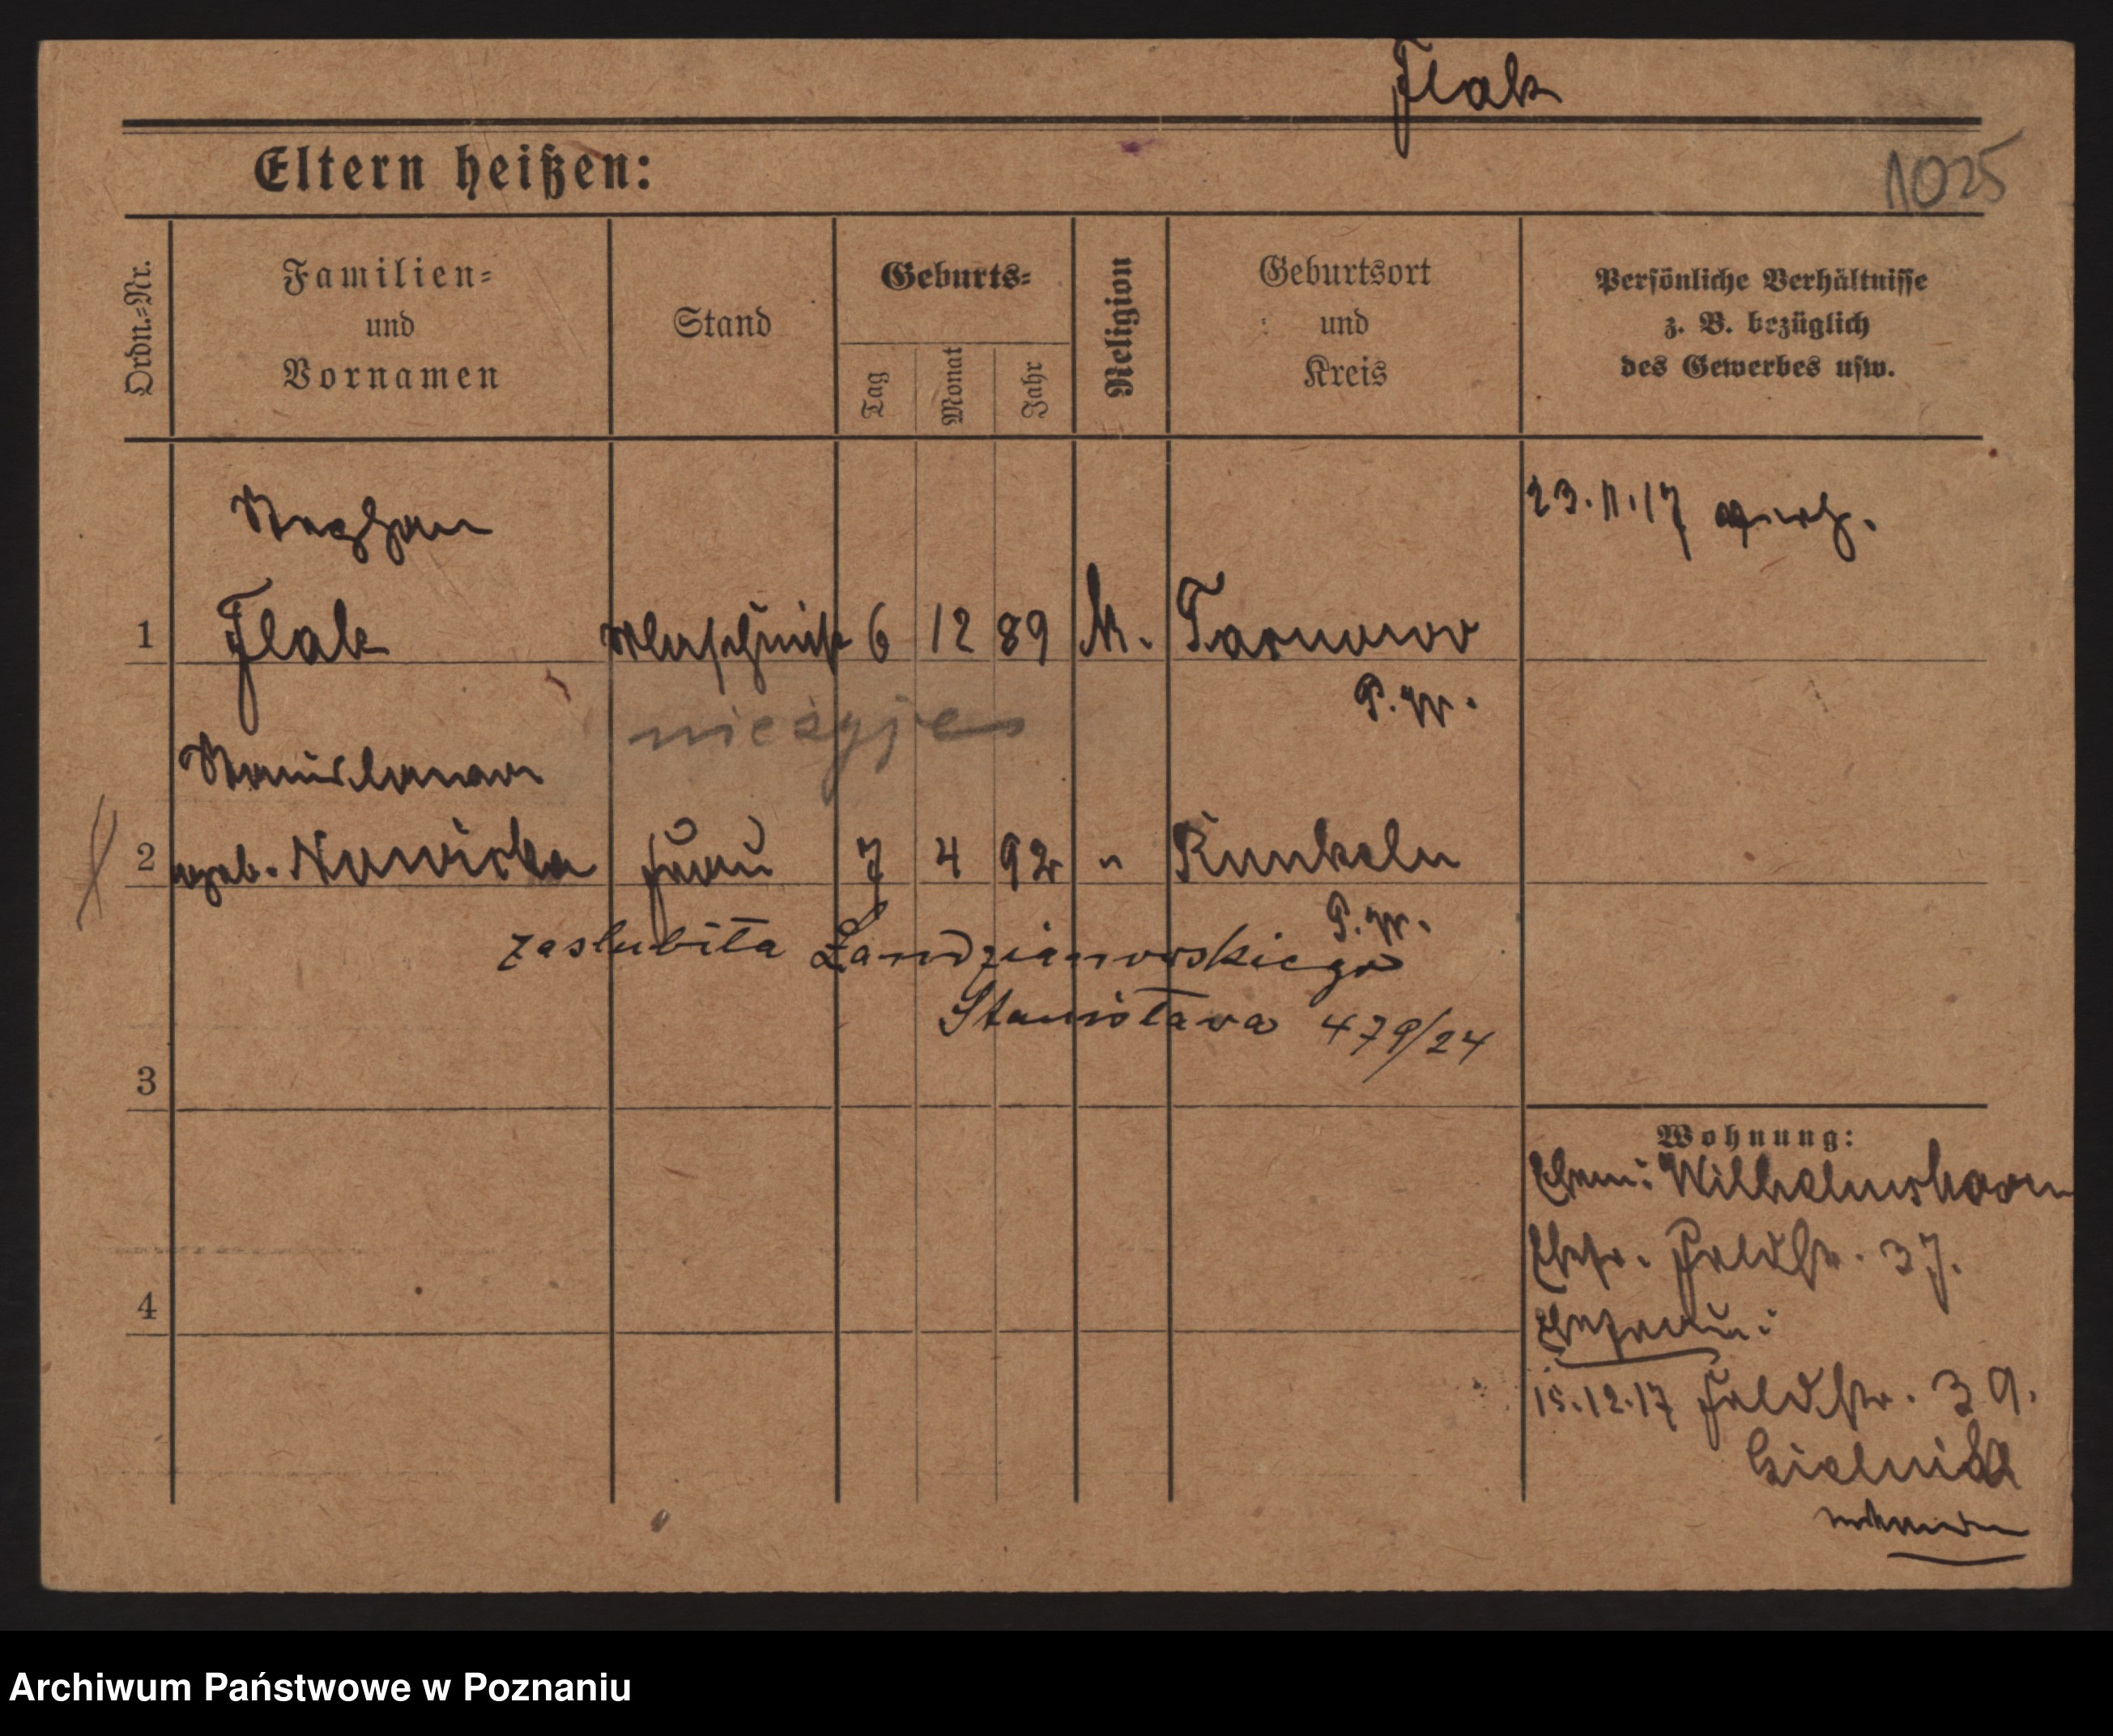 Flak
1025
Eltern heißen:
Ordn.-Nr.
Familien- und Vornamen
Stand
Geburts-
Tag
Monat
Jahr
Religion
Geburtsort und Kreis
Persönliche Verhältnisse z. B. bezüglich des Gewerbes usw.
Stephan
23.11.17
1 Flak 6 12 89 K. Tarnowo
P. W.
nieżyje
Stanislawa
2 geb. Nowicka Frau 7 4 92 " Runkeln
P. W.
zaslubiła Landzianowskiego
Stanisława 479/24
3
Wohnung:
Ehem: Wilhelmshaven
Ehefr. Feldstr. 37.
4
Ehefrau:
15.12.17 Feldstr. 39.
Bielnick
Archiwum Państwowe w Poznaniu